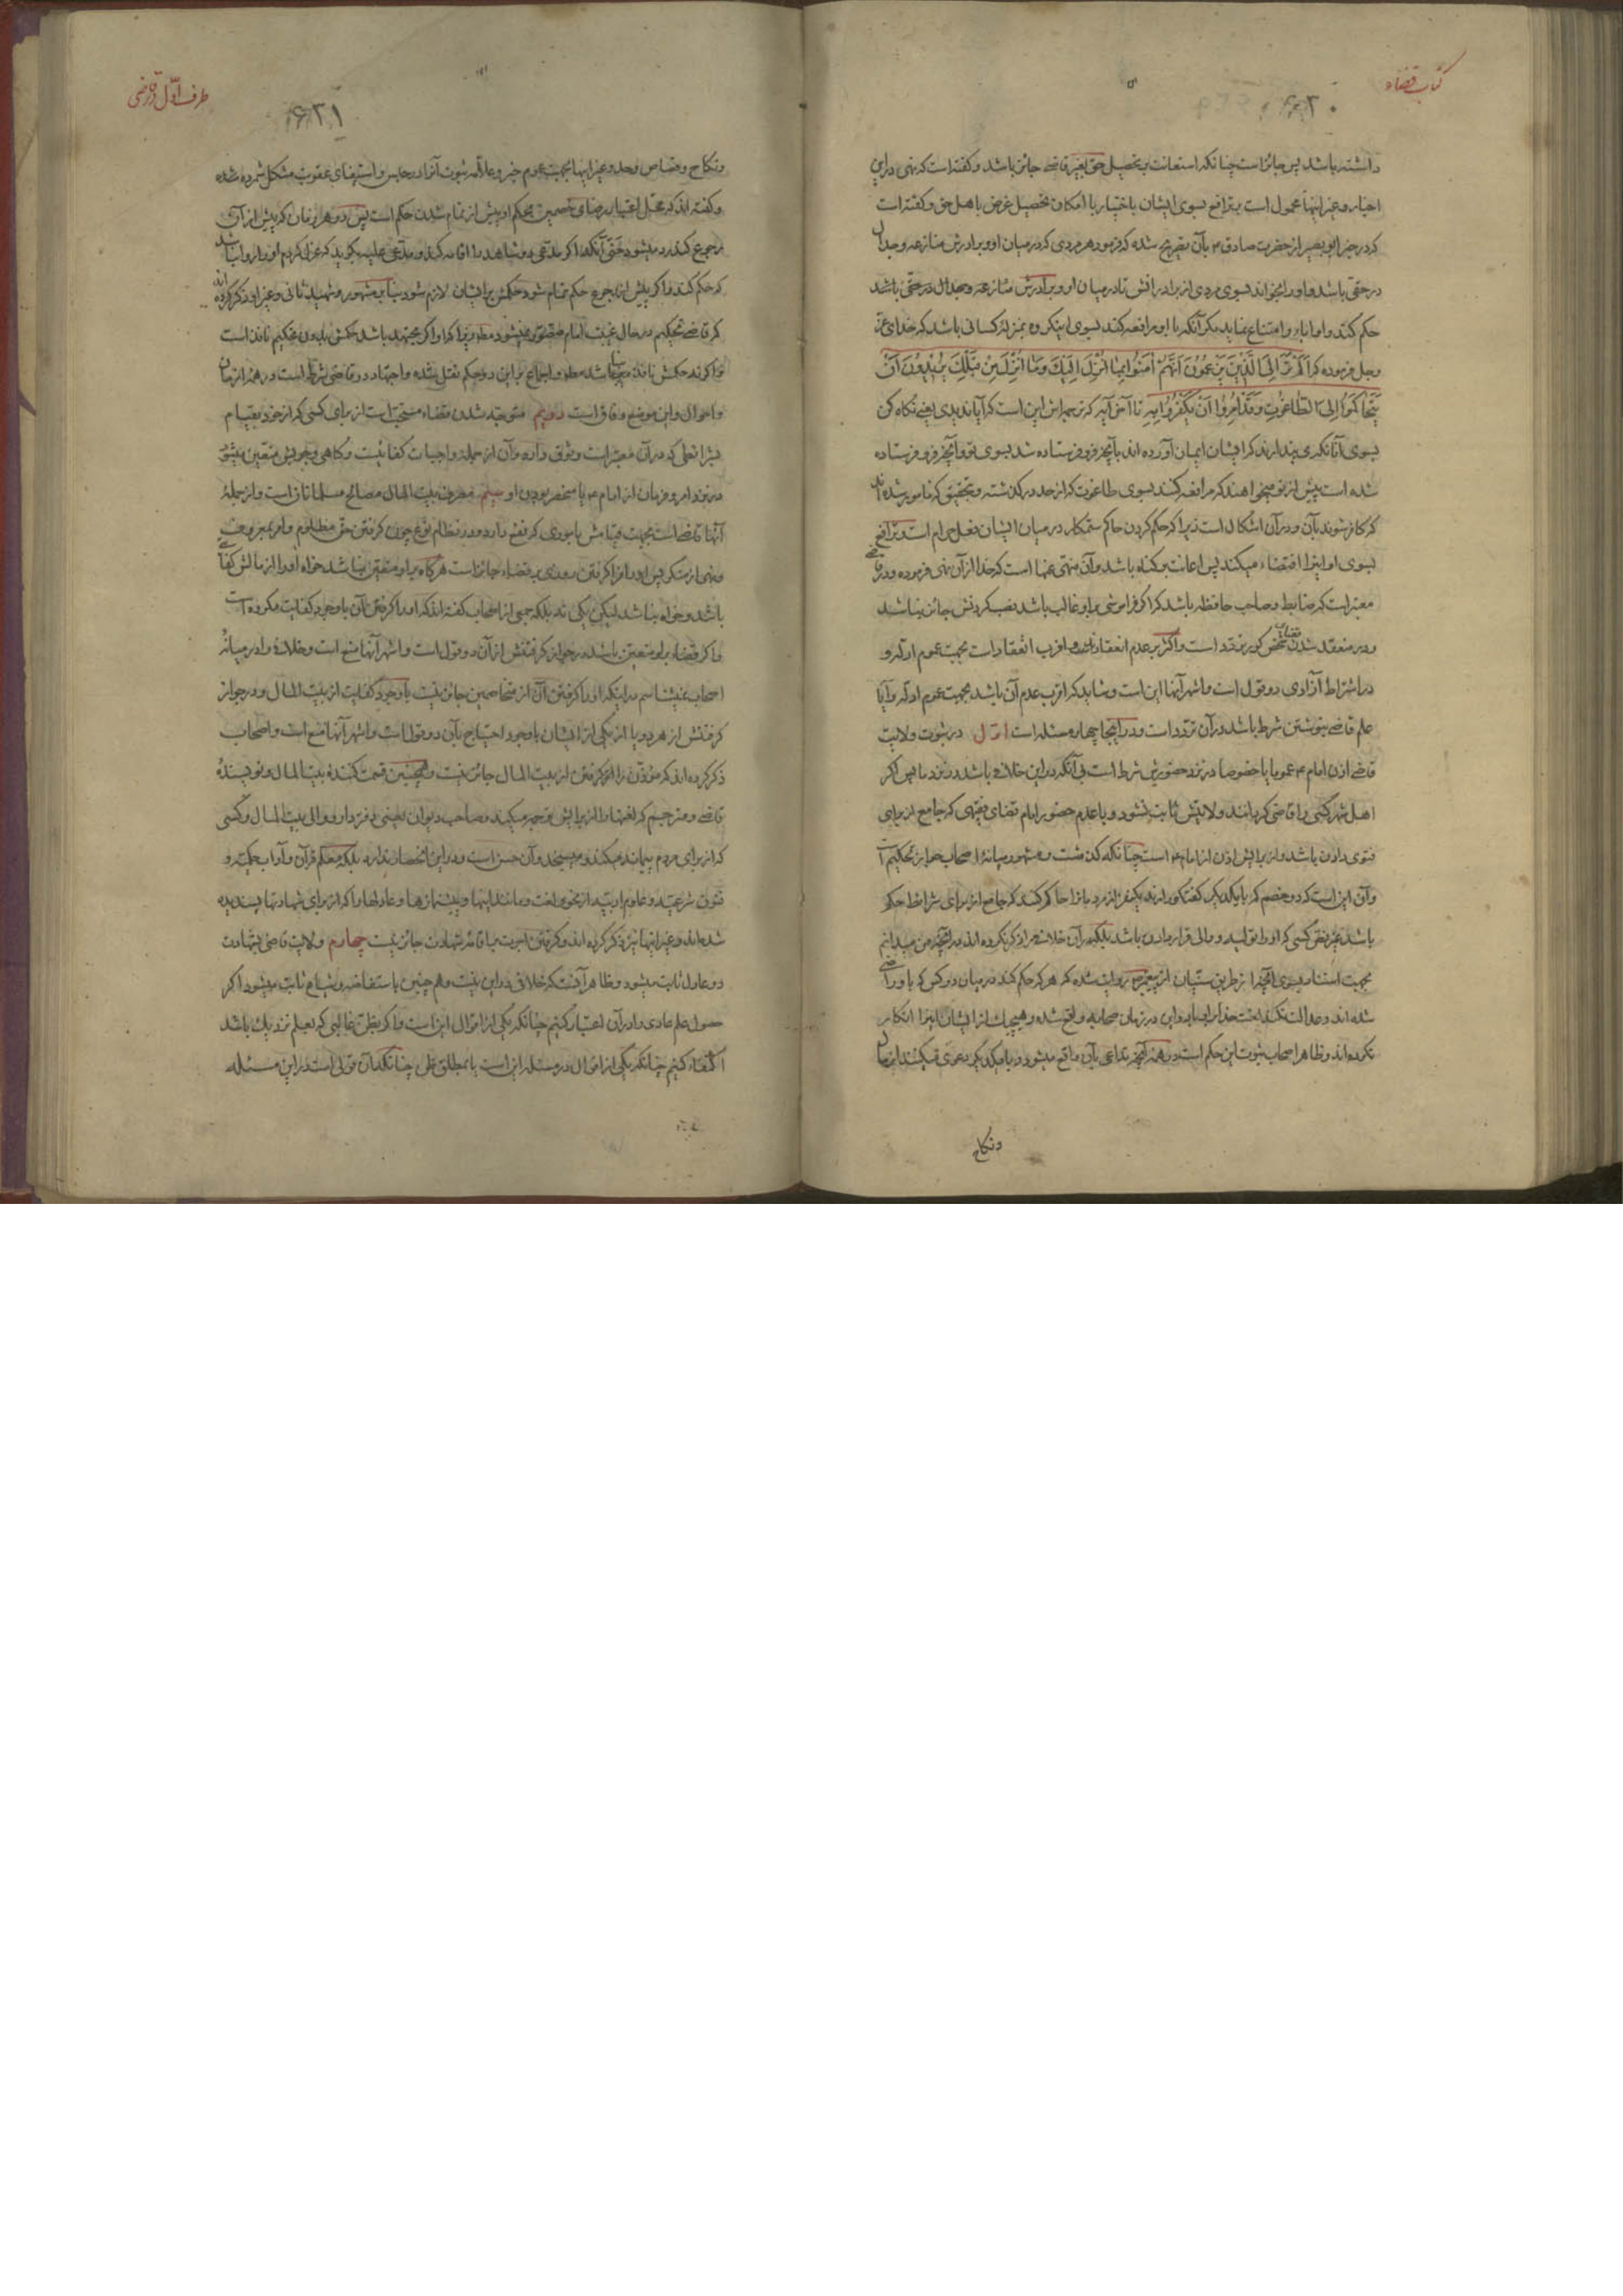 کتاب قضاء
۶۲۰
داشته باشد پس جائز است چنانکه استعانت بر تحصیل حق بغیر قاضی جائز باشد و کفته است که نهی در این
اخبار و غیر اینها محمول است بر ترافع بسوی ایشان باختیار با امکان تحصیل غرض باهل حق و کفته است
که در خبر ابو بصیر از حضرت صادق ۴ بآن تصریح شده که فرمود هر مردی که در میان او و برادرش منازعه و جدال
در حقی باشد و او را بخواند بسوی مردی از برادرانش تا در میان او و برادرش منازعه و جدال در حقی باشد
حکم کند و او اباء و امتناع نماید مکر آنکه با او مرافعه کند بسوی اینکروه بمنزلهٔ کسانی باشد که خدای عز
وجل فرموده که اَلَمْ تَرَ اِلَی الَّذینَ یَزْعُمُونَ اَنَّهُمْ اٰمَنُوا بِمٰا اُنْزِلَ اِلَیْكَ وَمٰا اُنْزِلَ مِنْ قَبْلِكَ یُریدُونَ اَنْ
یَتَحٰاکَمُوا اِلَی الطّٰاغُوتِ وَقَدْ اُمِرُوا اَنْ یَکْفُرُوا بِهِ تا آخر آیه که ترجمه‌اش این است که آیا ندیدی یعنی نکاه کن
بسوی آنانکه می‌پندارند که ایشان ایمان آورده اند بآنچه فرو فرستاده شد بسوی تو و آنچه فرو فرستاده
شده است پیش از تو میخواهند که مرافعه کنند بسوی طاغوت که از حد در کذشته و بتحقیق که مامور شده اند
که کافر شوند بآن و در آن اشکال است زیرا که حکم کردن حاکم ستمکار در میان ایشان فعل حرام است و ترافع
بسوی او اینرا اقتضاء میکند پس اعانت بر کناه باشد و آن منهی عنها است که خدا از آن نهی فرموده و در قاضی
معتبر است که ضابط و صاحب حافظه باشد که اکر فراموشی بر او غالب باشد نصب کردنش جائز نباشد
و در منعقد شدن قضای شخص کور تردد است و اکثر بر عدم انعقاد و اقرب انعقاد است بجهت عموم ادله و
در اشتراط آزادی دو قول است و اشهر آنها این است و شاید که اقرب عدم آن باشد بجهت عموم ادله و آیا
علم قاضی بنوشتن شرط باشد در آن تردد است و در اینجا چهار مسئله است اول در ثبوت ولایت
قاضی اذن امام ۴ عموما یا خصوصا در نزد حضورش شرط است بی آنکه در این خلاف باشد در نزد ما پس اکر
اهل شهر کسی را قاضی کردانند ولایتش ثابت نشود و با عدم حضور امام قضای فقیهی که جامع از برای
فتوی دادن باشد و از برایش اذن از امام ۴ است چنانکه کذشت و مشهور میانهٔ اصحاب جواز تحکیم است
و آن این است که دو خصم که با یکدیکر کفتکو دارند یکنفر از مردمانرا حاکم کنند که جامع از برای شرایط حکم
باشد غیر نص کسی که او را تولیه و والی قرار دادن باشد بلکه در آن خلاف را ذکر نکرده اند در آنچه من میدانم
بجهت استناد بسوی آنچه از طریق سنیان از پیغمبر ص روایت شده که هر که حکم کند در میان دو کس که باو راضی
شده اند و عدالت نکند لعنت خدا بر او باد و این در زمان صحابه واقع شده و هیچیک از ایشان اینرا انکار
نکرده اند و ظاهر اصحاب ثبوت این حکم است در همه آنچه تداعی بآن واقع میشود و با یکدیکر دعوی میکنند از مال
ونکاح
طرف اول در قاضی
۶۲۱
ونکاح و قصاص و حد و غیر اینها بجهت عموم خبر و علامه ثبوت آنرا در حبس و استیفای عقوبت مشکل شمرده شده
و کفته اند که محل اعتبار رضای خصمین بحکم او پیش از تمام شدن حکم است پس در هر زمان که پیش از آن
رجوع کنند رد میشود حتی آنکه اکر مدعی دو شاهد را اقامه کند و مدعی علیه بکوید که عزل کردم او را روا نباشد
که حکم کند و اکر پیش از رجوع حکم تمام شود حکمش بر ایشان لازم شود بنابر مشهور و شهید ثانی و غیر او ذکر کرده اند
که قاضی تحکیم در حال غیبت امام متصور نمیشود مطلقا زیرا که او اکر مجتهد باشد حکمش بدون تحکیم نافذ است
و اکر نه حکمش نافذ نمیباشد مطلقا و اجماع بر این دو حکم نقل شده و اجتهاد در قاضی شرط است در همه ازمان
و احوال و این موضع وفاق است دویم متوجه شدن قضاء مستحب است از برای کسی که از خود بقیام
بشرائطی که در آن معتبر است وثوق دارد و آن از جمله واجبات کفائیست و کاهی وجوبش متعین میشود
در نزد امر و فرمان از امام ۴ یا منحصر بودن او سیم مصرف بیت المال مصالح مسلمانان است و از جملهٔ
آنها قاضی است بجهت قیامش بامری که نفع دارد و در نظام نوع چون کرفتن حق مظلوم و امر بمعروف
و نهی از منکر پس او را فرا کرفتن روزی بر قضاء جائز است هر کاه بر او متعین نباشد خواه او را از مالش کفایتی
باشد و خواه نباشد لیکن یکی نه بلکه جمعی از اصحاب کفته اند که او را کرفتن آن با وجود کفایت مکروه است
و اکر قضاء بر او متعین باشد در جواز کرفتنش از آن دو قول است و اشهر آنها منع است و خلاف را در میانهٔ
اصحاب نمیشناسم در اینکه او را کرفتن آن از متخاصمین جائز نیست با وجود کفایت از بیت المال و در جواز
کرفتنش از هر دو یا از یکی از ایشان با وجود احتیاج بآن دو قولست و اشهر آنها منع است و اصحاب
ذکر کرده اند که مؤذن را اجر کرفتن از بیت المال جائز نیست و همچنین قسمت کنندهٔ بیت المال و نویسندهٔ
قاضی و مترجم که لغتها را از برایش ترجمه میکند و صاحب دیوان یعنی دفتردار و والی بیت المال و کسی
که از برای مردم پیمانه میکند و میسنجد و آن حسن است و در این انحصار ندارد بلکه معلم قرآن و آداب حکمت و
فنون شرعیه و علوم ادبیه از نحو و لغت و مانند اینها و پیشنمازها و عادلها را که از برای شهادتها پسندیده
شده‌اند و غیر اینها نیز ذکر کرده اند و کرفتن اجرت بر اقامه شهادت جائز نیست چهارم ولایت قاضی بشهادت
دو عادل ثابت میشود و ظاهر آنست که خلافی در این نیست و هم چنین باستفاضه و شیاع ثابت میشود اکر
حصول علم عادی را در آن اعتبار کنیم چنانکه یکی از اقوال این است و اکر بظن غالبی که بعلم نزدیك باشد
اکتفاء کنیم چنانکه یکی از اقوال در مسئله این است یا بمطلق ظن چنانکه آن قولی است در این مسئله